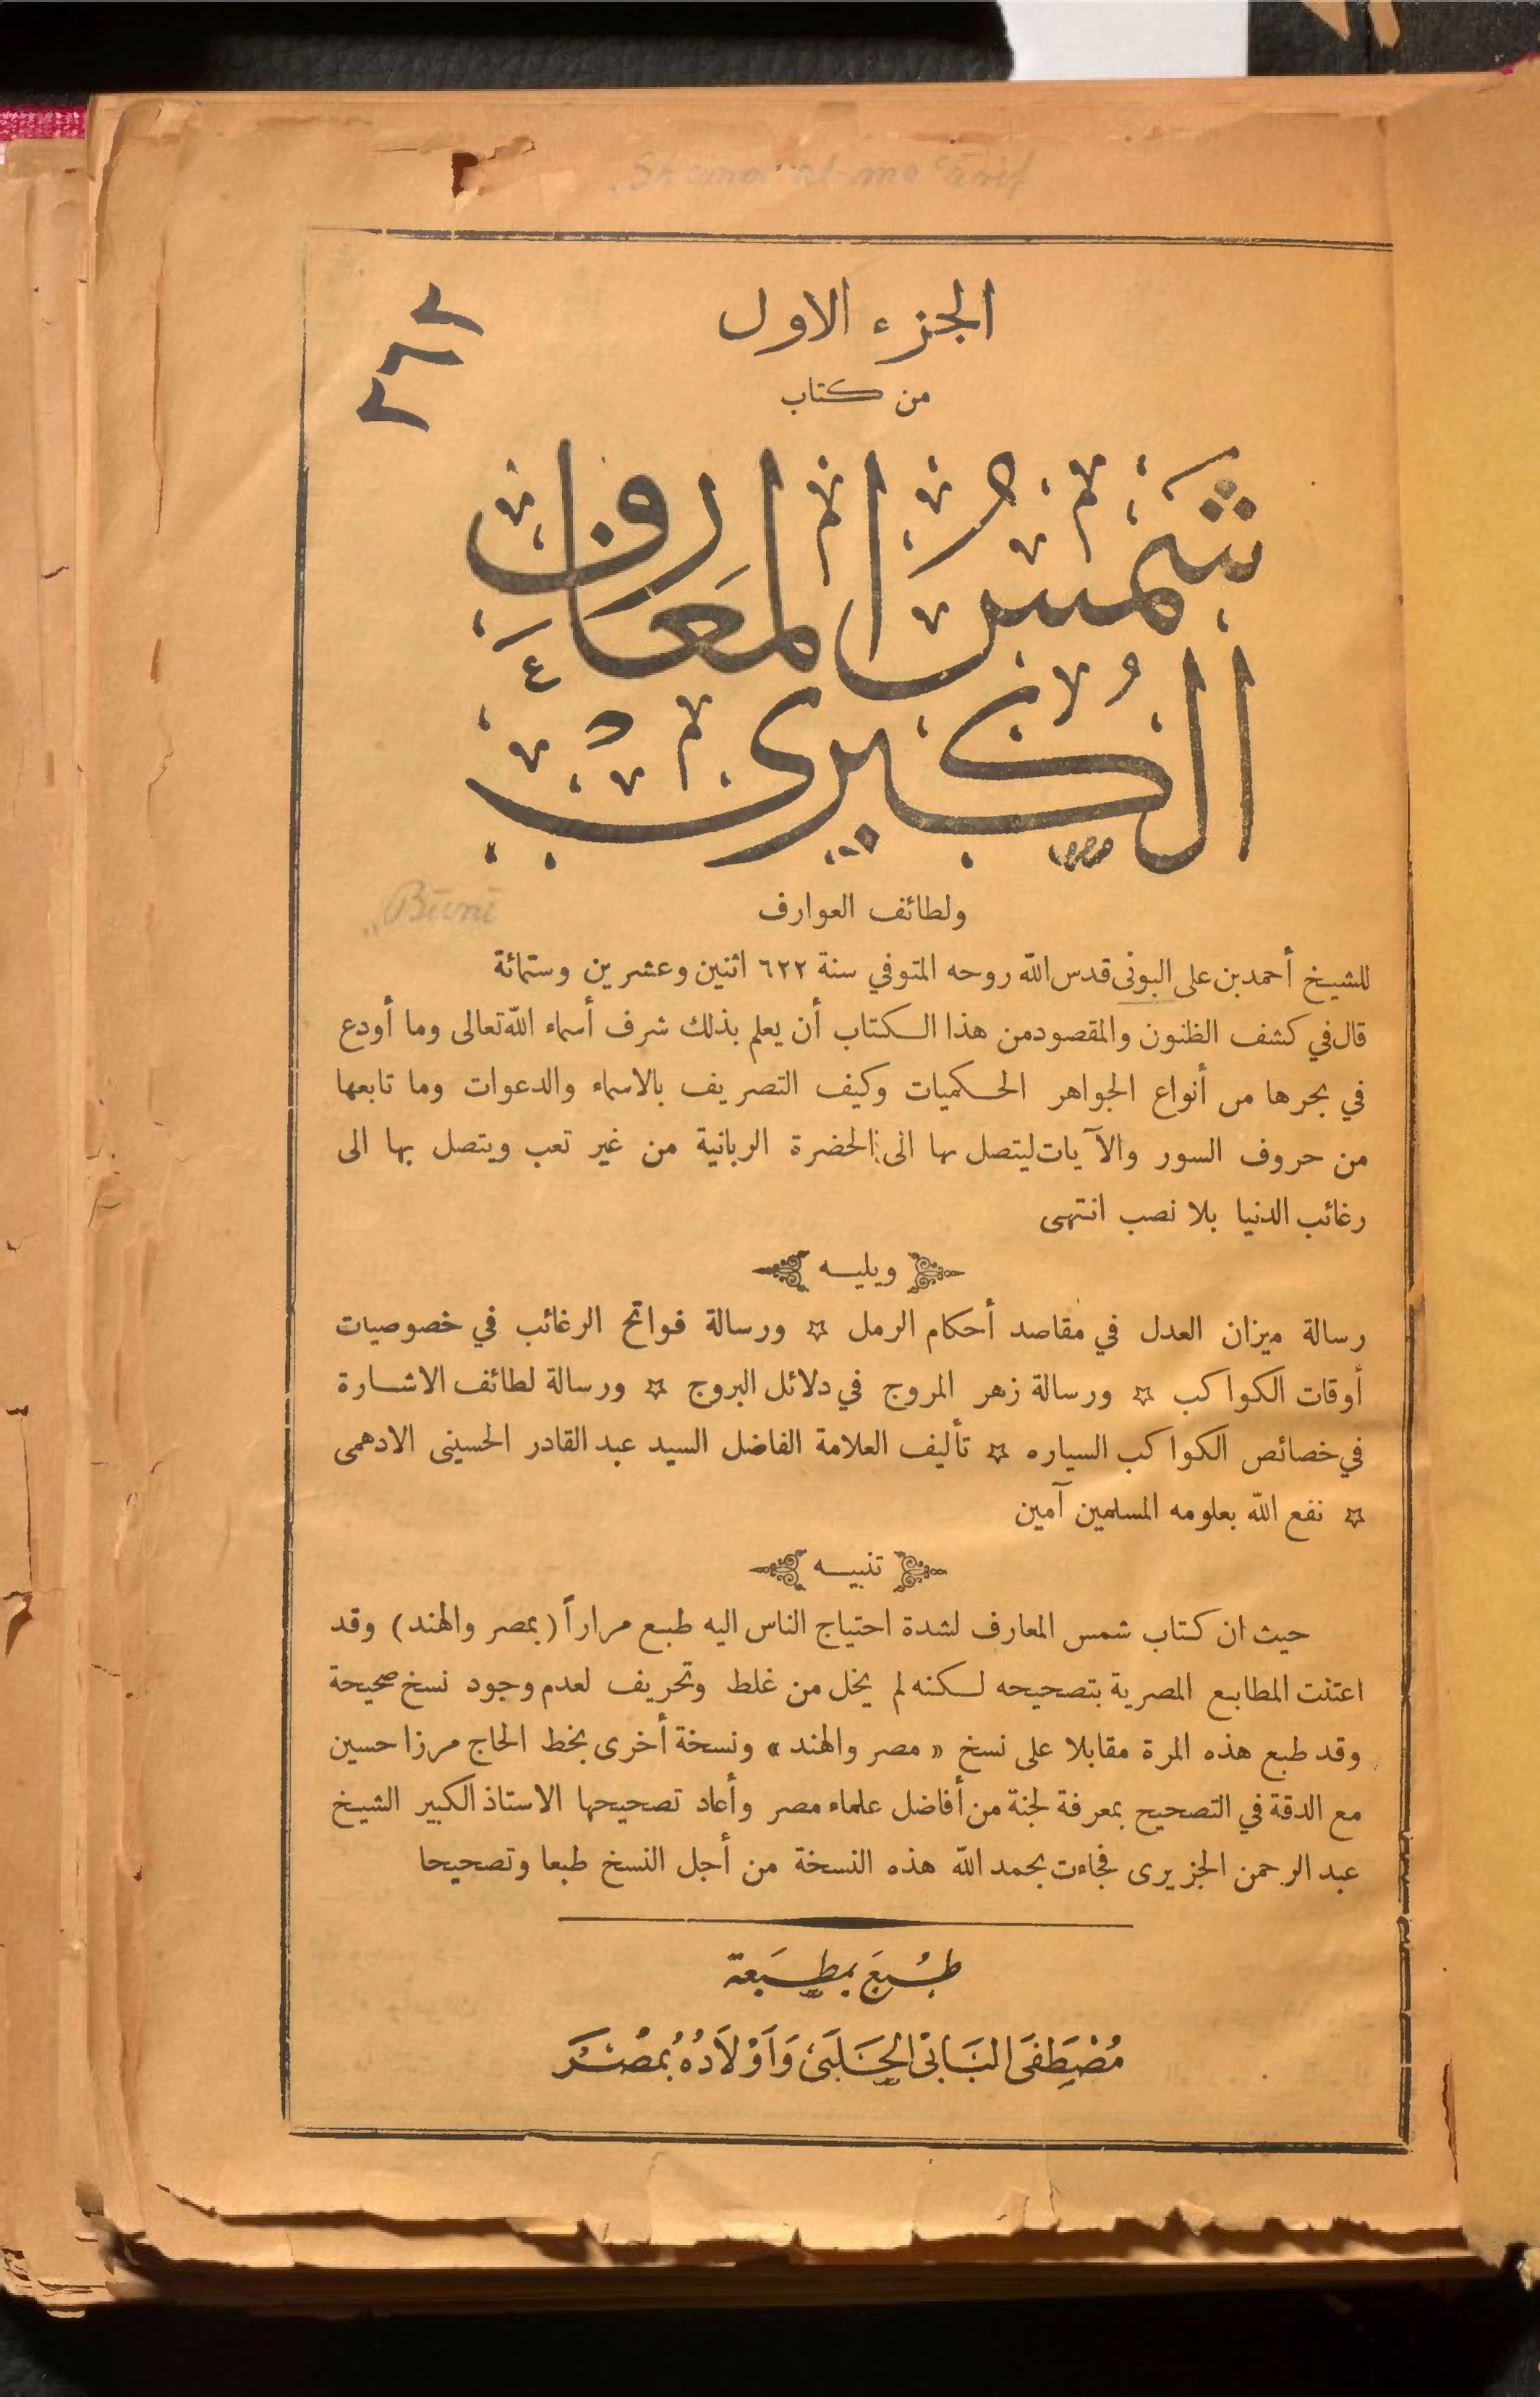 الجزء الاول
من كتاب
شمس المعارف
الكبرى
ولطائف العوارف
Būnī
للشيخ أحمد بن على البونى قدس الله روحه المتوفي سنة ٦٢٢ اثنين وعشرين وستمائة
قال في كشف الظنون والمقصود من هذا الكتاب أن يعلم بذلك شرف أسماء الله تعالى وما أودع
في بحرها من أنواع الجواهر الحكميات وكيف التصريف بالاسماء والدعوات وما تابعها
من حروف السور والآيات ليتصل بها الى الحضرة الربانية من غير تعب ويتصل بها الى
رغائب الدنيا بلا نصب انتهى
ويليه
رسالة ميزان العدل في مقاصد أحكام الرمل ☆ ورسالة فواتح الرغائب في خصوصيات
أوقات الكواكب ☆ ورسالة زهر المروج في دلائل البروج ☆ ورسالة لطائف الاشارة
في خصائص الكواكب السياره ☆ تأليف العلامة الفاضل السيد عبد القادر الحسينى الادهمى
☆ نفع الله بعلومه المسلمين آمين
تنبيه
حيث ان كتاب شمس المعارف لشدة احتياج الناس اليه طبع مراراً (بمصر والهند) وقد
اعتنت المطابع المصرية بتصحيحه لكنه لم يخل من غلط وتحريف لعدم وجود نسخ صحيحة
وقد طبع هذه المرة مقابلا على نسخ «مصر والهند» ونسخة أخرى بخط الحاج مرزا حسين
مع الدقة في التصحيح بمعرفة لجنة من أفاضل علماء مصر وأعاد تصحيحها الاستاذ الكبير الشيخ
عبد الرحمن الجزيرى فجاءت بحمد الله هذه النسخة من أجل النسخ طبعا وتصحيحا
طُبعَ بمطبَعة
مُصْطَفَى البَابى الحَلَبى وَأَوْلَادُهُ بمصْرَ